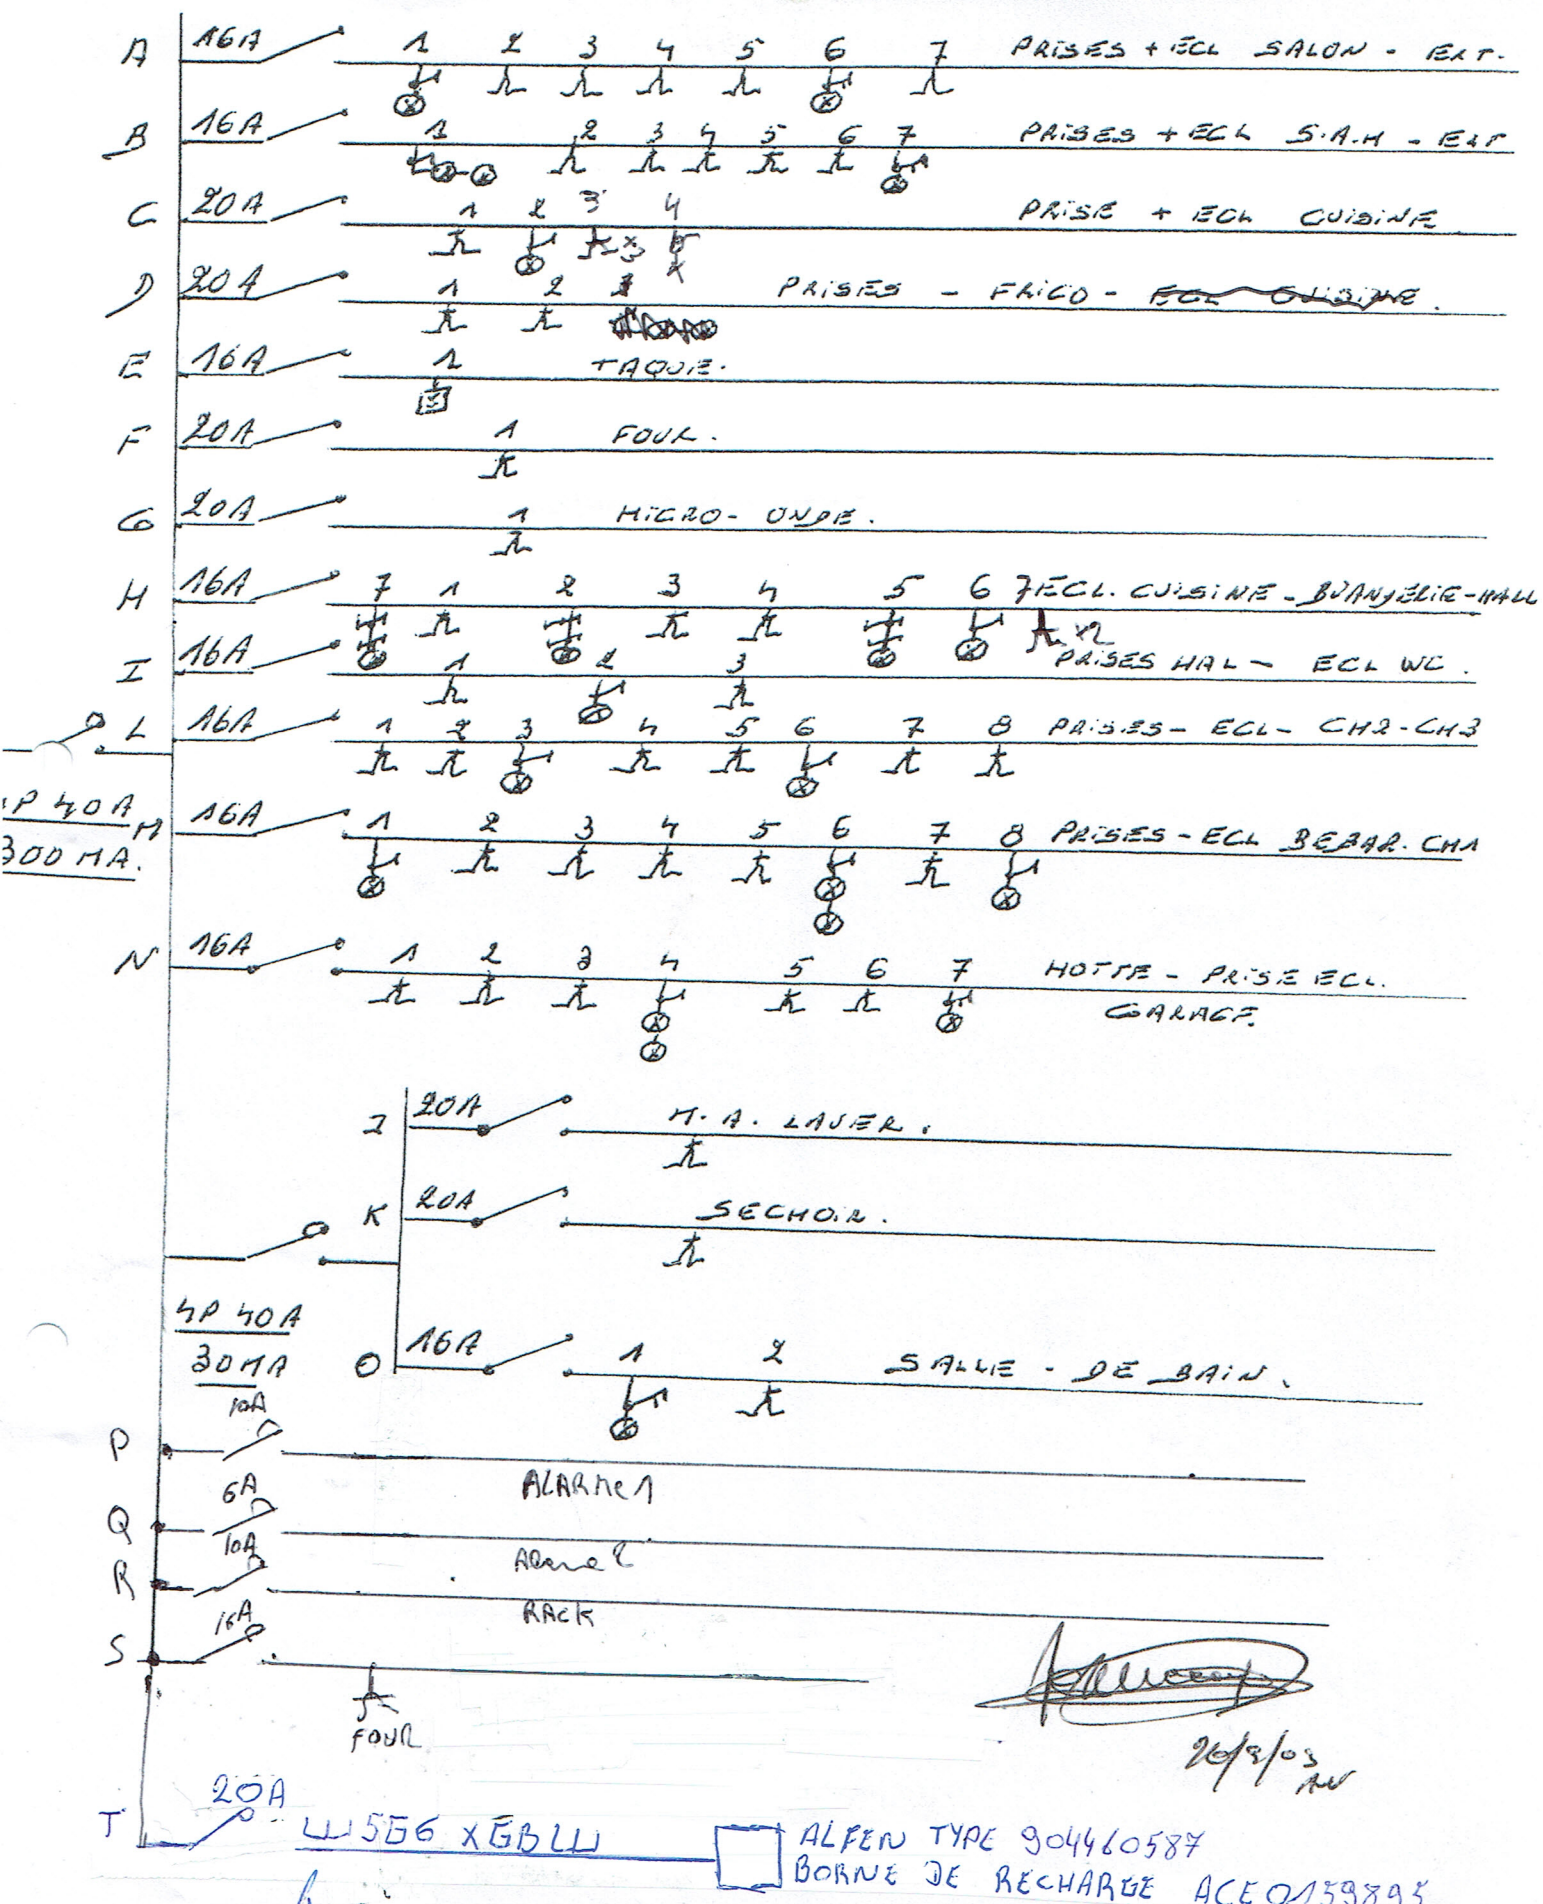 A 16A 1 2 3 4 5 6 7 PRISES + ECL SALON - EXT.
B 16A 1 2 3 4 5 6 7 PRISES + ECL S.A.M - EXT
C 20A 1 2 3 4 PRISE + ECL CUISINE
x3
D 20A 1 2 PRISES - FRIGO - ECL CUISINE.
E 16A 1 TAQUE.
F 20A 1 FOUR.
G 20A 1 MICRO-ONDE.
H 16A 7 1 2 3 4 5 6 7 ECL. CUISINE - BUANDERIE-HALL
x2
I 16A 1 2 3 PRISES HAL - ECL WC.
L 16A 1 2 3 4 5 6 7 8 PRISES - ECL - CH2-CH3
P 40A
300 MA.
M 16A 1 2 3 4 5 6 7 8 PRISES - ECL DEBAR. CH1
N 16A 1 2 3 4 5 6 7 HOTTE - PRISE ECL.
GARAGE.
J 20A M. A. LAVER.
K 20A SECHOIR.
4P 40A
30MA
O 16A 1 2 SALLE - DE BAIN.
P 10A
ALARME 1
Q 6A
Alarme 2
R 10A
RACK
S 16A
FOUR
T 20A 5G6 XGB
ALFEN TYPE 904460587
BORNE DE RECHARGE ACE0159895